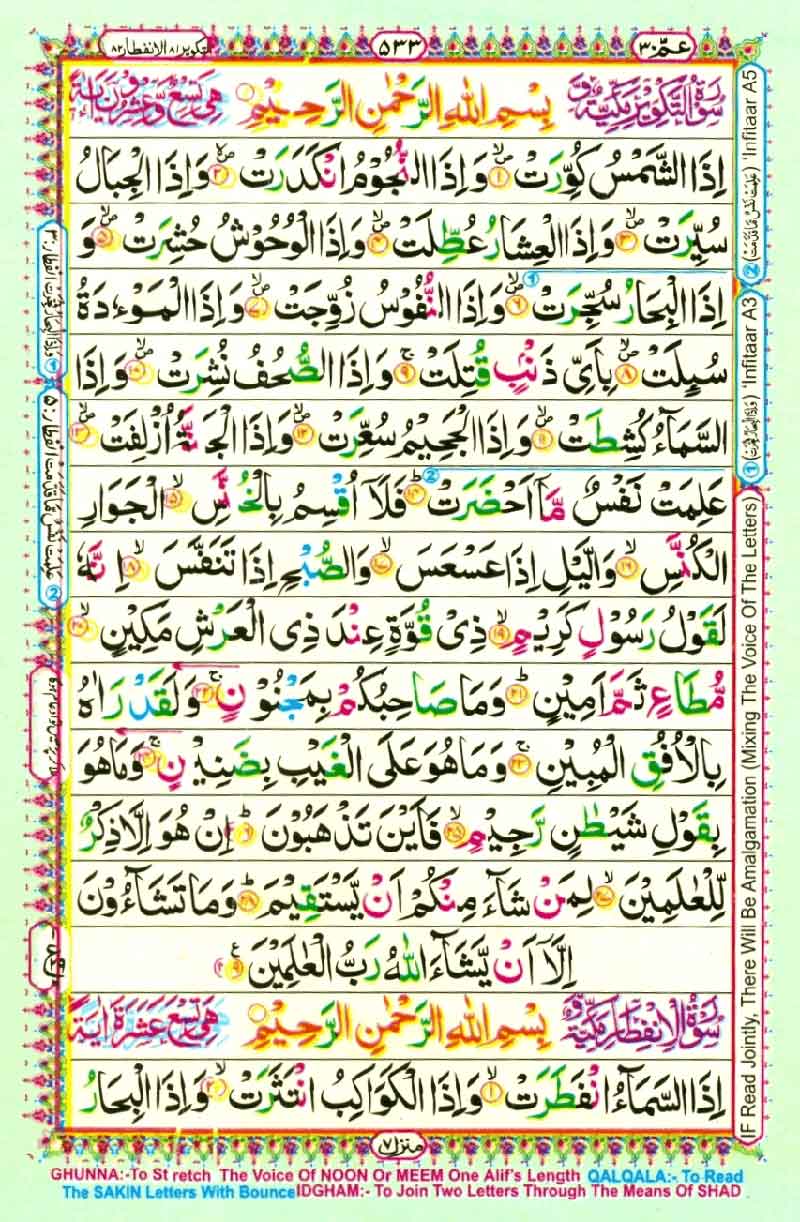 عمّ ٣٠
٥٣٣
التكوير ٨١ الانفطار ٨٢
سُوْرَةُ التَّكْوِيْرِ مَكِّيَّةٌ وَّ بِسْمِ اللهِ الرَّحْمٰنِ الرَّحِيْمِ هِيَ تِسْعٌ وَّعِشْرُوْنَ اٰيَةً
اِذَا الشَّمْسُ كُوِّرَتْ ۝١ وَاِذَا النُّجُوْمُ انْكَدَرَتْ ۝٢ وَاِذَا الْجِبَالُ
سُيِّرَتْ ۝٣ وَاِذَا الْعِشَارُ عُطِّلَتْ ۝٤ وَاِذَا الْوُحُوْشُ حُشِرَتْ ۝٥ وَ
اِذَا الْبِحَارُ سُجِّرَتْ ۝٦ وَاِذَا النُّفُوْسُ زُوِّجَتْ ۝٧ وَاِذَا الْمَوْءٗدَةُ
سُىِٕلَتْ ۝٨ بِاَىِّ ذَنْۢبٍ قُتِلَتْ ۝٩ وَاِذَا الصُّحُفُ نُشِرَتْ ۝١٠ وَاِذَا
السَّمَآءُ كُشِطَتْ ۝١١ وَاِذَا الْجَحِيْمُ سُعِّرَتْ ۝١٢ وَاِذَا الْجَنَّةُ اُزْلِفَتْ ۝١٣
عَلِمَتْ نَفْسٌ مَّاۤ اَحْضَرَتْ ۝١٤ فَلَاۤ اُقْسِمُ بِالْخُنَّسِ ۝١٥ الْجَوَارِ
الْكُنَّسِ ۝١٦ وَالَّيْلِ اِذَا عَسْعَسَ ۝١٧ وَالصُّبْحِ اِذَا تَنَفَّسَ ۝١٨ اِنَّهٗ
لَقَوْلُ رَسُوْلٍ كَرِيْمٍ ۝١٩ ذِيْ قُوَّةٍ عِنْدَ ذِى الْعَرْشِ مَكِيْنٍ ۝٢٠
مُّطَاعٍ ثَمَّ اَمِيْنٍ ۝٢١ وَمَا صَاحِبُكُمْ بِمَجْنُوْنٍ ۝٢٢ وَلَقَدْ رَاٰهُ
بِالْاُفُقِ الْمُبِيْنِ ۝٢٣ وَمَا هُوَ عَلَى الْغَيْبِ بِضَنِيْنٍ ۝٢٤ وَمَا هُوَ
بِقَوْلِ شَيْطٰنٍ رَّجِيْمٍ ۝٢٥ فَاَيْنَ تَذْهَبُوْنَ ۝٢٦ اِنْ هُوَ اِلَّا ذِكْرٌ
لِّلْعٰلَمِيْنَ ۝٢٧ لِمَنْ شَآءَ مِنْكُمْ اَنْ يَّسْتَقِيْمَ ۝٢٨ وَمَا تَشَآءُوْنَ
اِلَّاۤ اَنْ يَّشَآءَ اللهُ رَبُّ الْعٰلَمِيْنَ ۝٢٩
سُوْرَةُ الْاِنْفِطَارِ مَكِّيَّةٌ وَّ بِسْمِ اللهِ الرَّحْمٰنِ الرَّحِيْمِ هِيَ تِسْعَ عَشَرَةَ اٰيَةً
اِذَا السَّمَآءُ انْفَطَرَتْ ۝١ وَاِذَا الْكَوَاكِبُ انْتَثَرَتْ ۝٢ وَاِذَا الْبِحَارُ
منزل ٧
GHUNNA:-To Stretch The Voice Of NOON Or MEEM One Alif's Length QALQALA:- To Read
The SAKIN Letters With Bounce IDGHAM:- To Join Two Letters Through The Means Of SHAD
IF Read Jointly, There Will Be Amalgamation (Mixing The Voice Of The Letters) ① 'Infitaar A3 ② 'Infitaar A5